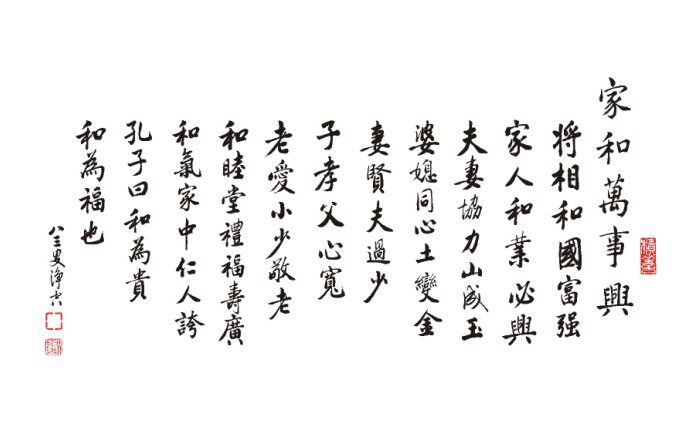 家和萬事興
將相和國富强
家人和業必興
夫妻協力山成玉
婆媳同心土變金
妻賢夫過少
子孝父心寬
老愛小少敬老
和睦堂禮福壽廣
和氣家中仁人誇
孔子曰和為貴
和為福也
八三叟淨